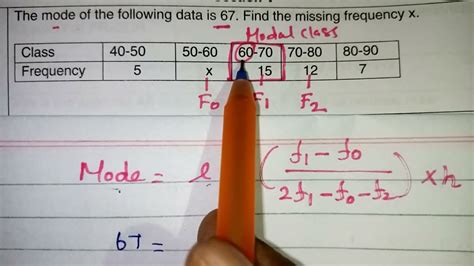 The mode of the following data is 67. Find the missing frequency x.
Modal class
Class 40-50 50-60 60-70 70-80 80-90
Frequency 5 x 15 12 7
F₀ F₁ F₂
Mode = l ( f₁ - f₀ / 2f₁ - f₀ - f₂ ) × h
67 =